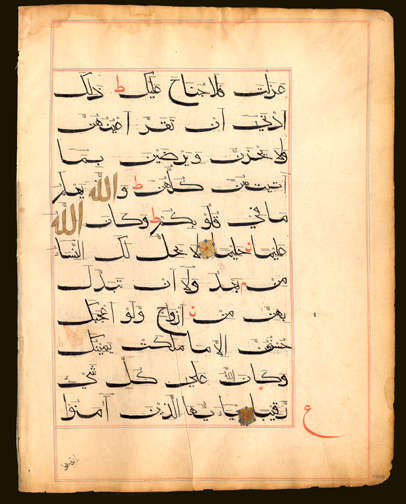 عزلت فلا جناح عليك ط ذلك
ادنى ان تقر اعينهن
ولا يحزن ويرضين بما
آتيتهن كلهن ط والله يعلم
ما في قلوبكم ط وكان الله
عليما حليما لا يحل لك النساء
من بعد ولا ان تبدل
بهن من ازواج ولو اعجبك
حسنهن الا ما ملكت يمينك
وكان الله على كل شيء
رقيبا يا ايها الذين آمنوا
ع